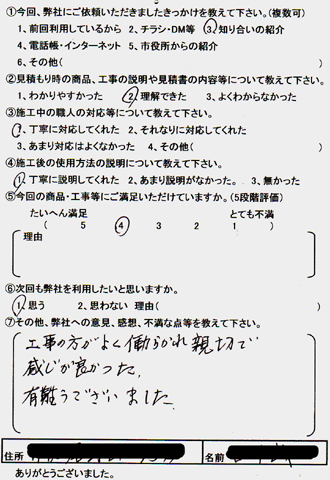 ①今回、弊社にご依頼いただきましたきっかけを教えて下さい。(複数可)
1、前回利用しているから 2、チラシ・DM等 3、知り合いの紹介
4、電話帳・インターネット 5、市役所からの紹介
6、その他( )
②見積もり時の商品、工事の説明や見積書の内容等について教えて下さい。
1、わかりやすかった 2、理解できた 3、よくわからなかった
③施工中の職人の対応等について教えて下さい。
1、丁寧に対応してくれた 2、それなりに対応してくれた
3、あまり対応はよくなかった 4、その他( )
④施工後の使用方法の説明について教えて下さい。
1、丁寧に説明してくれた 2、あまり説明がなかった。 3、無かった
⑤今回の商品・工事等にご満足いただけていますか。(5段階評価)
たいへん満足 とても不満
( 5 4 3 2 1 )
理由
⑥次回も弊社を利用したいと思いますか。
1、思う 2、思わない 理由( )
⑦その他、弊社への意見、感想、不満な点等を教えて下さい。
工事の方がよく働かれ親切で
感じが良かった。
有難うございました。
住所 名前
ありがとうございました。